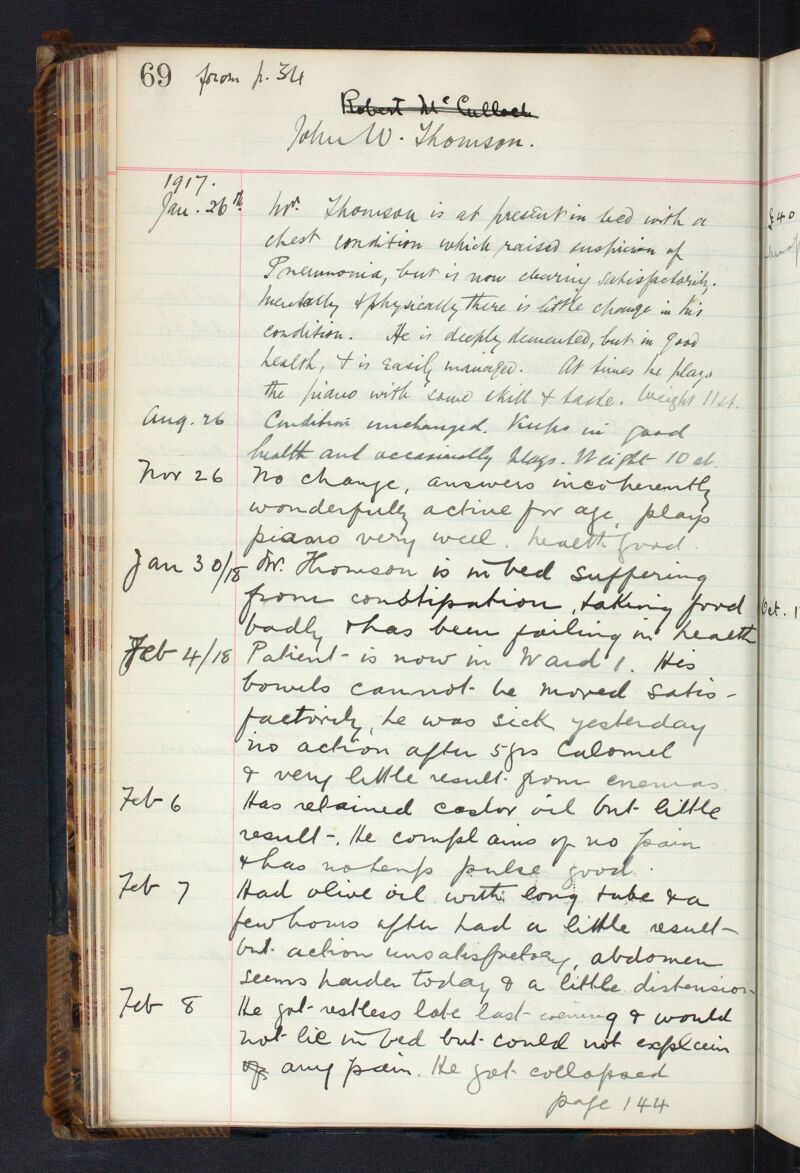 69 from p. 34
Robert McCulloch
John W. Thomson.
1917.
Jan. 26th. Mr. Thomson is at present in bed with a
chest condition which raised suspicion of
Pneumonia, but is now clearing satisfactorily.
Mentally & physically there is little change in his
condition. He is deeply demented, but in good
health, & is easily managed. At times he plays
the piano with some skill & taste. Weight 11 st.
Aug. 26 Condition unchanged. Keeps in good
health and occasionally plays. Weight 10 st.
Nov 26 No change, answers incoherently
wonderfully active for age, plays
piano very well. health good.
Jan 30/18 Mr. Thomson is in bed suffering
from constipation, taking food
badly & has been failing in health
Feb 4/18 Patient is now in Ward 1. His
bowels cannot be moved satis-
factorily, he was sick yesterday
no action after 5 grs Calomel
& very little result from enemas.
Feb 6 Has retained castor oil but little
result. He complains of no pain
& has no temp pulse good.
Feb 7 Had olive oil with long tube & a
few hours after had a little result
but action unsatisfactory, abdomen
seems harder today & a little distension
Feb 8 He got restless late last evening & would
not lie in bed but could not explain
of any pain. He got collapsed
page 144
£40
Oct. 1